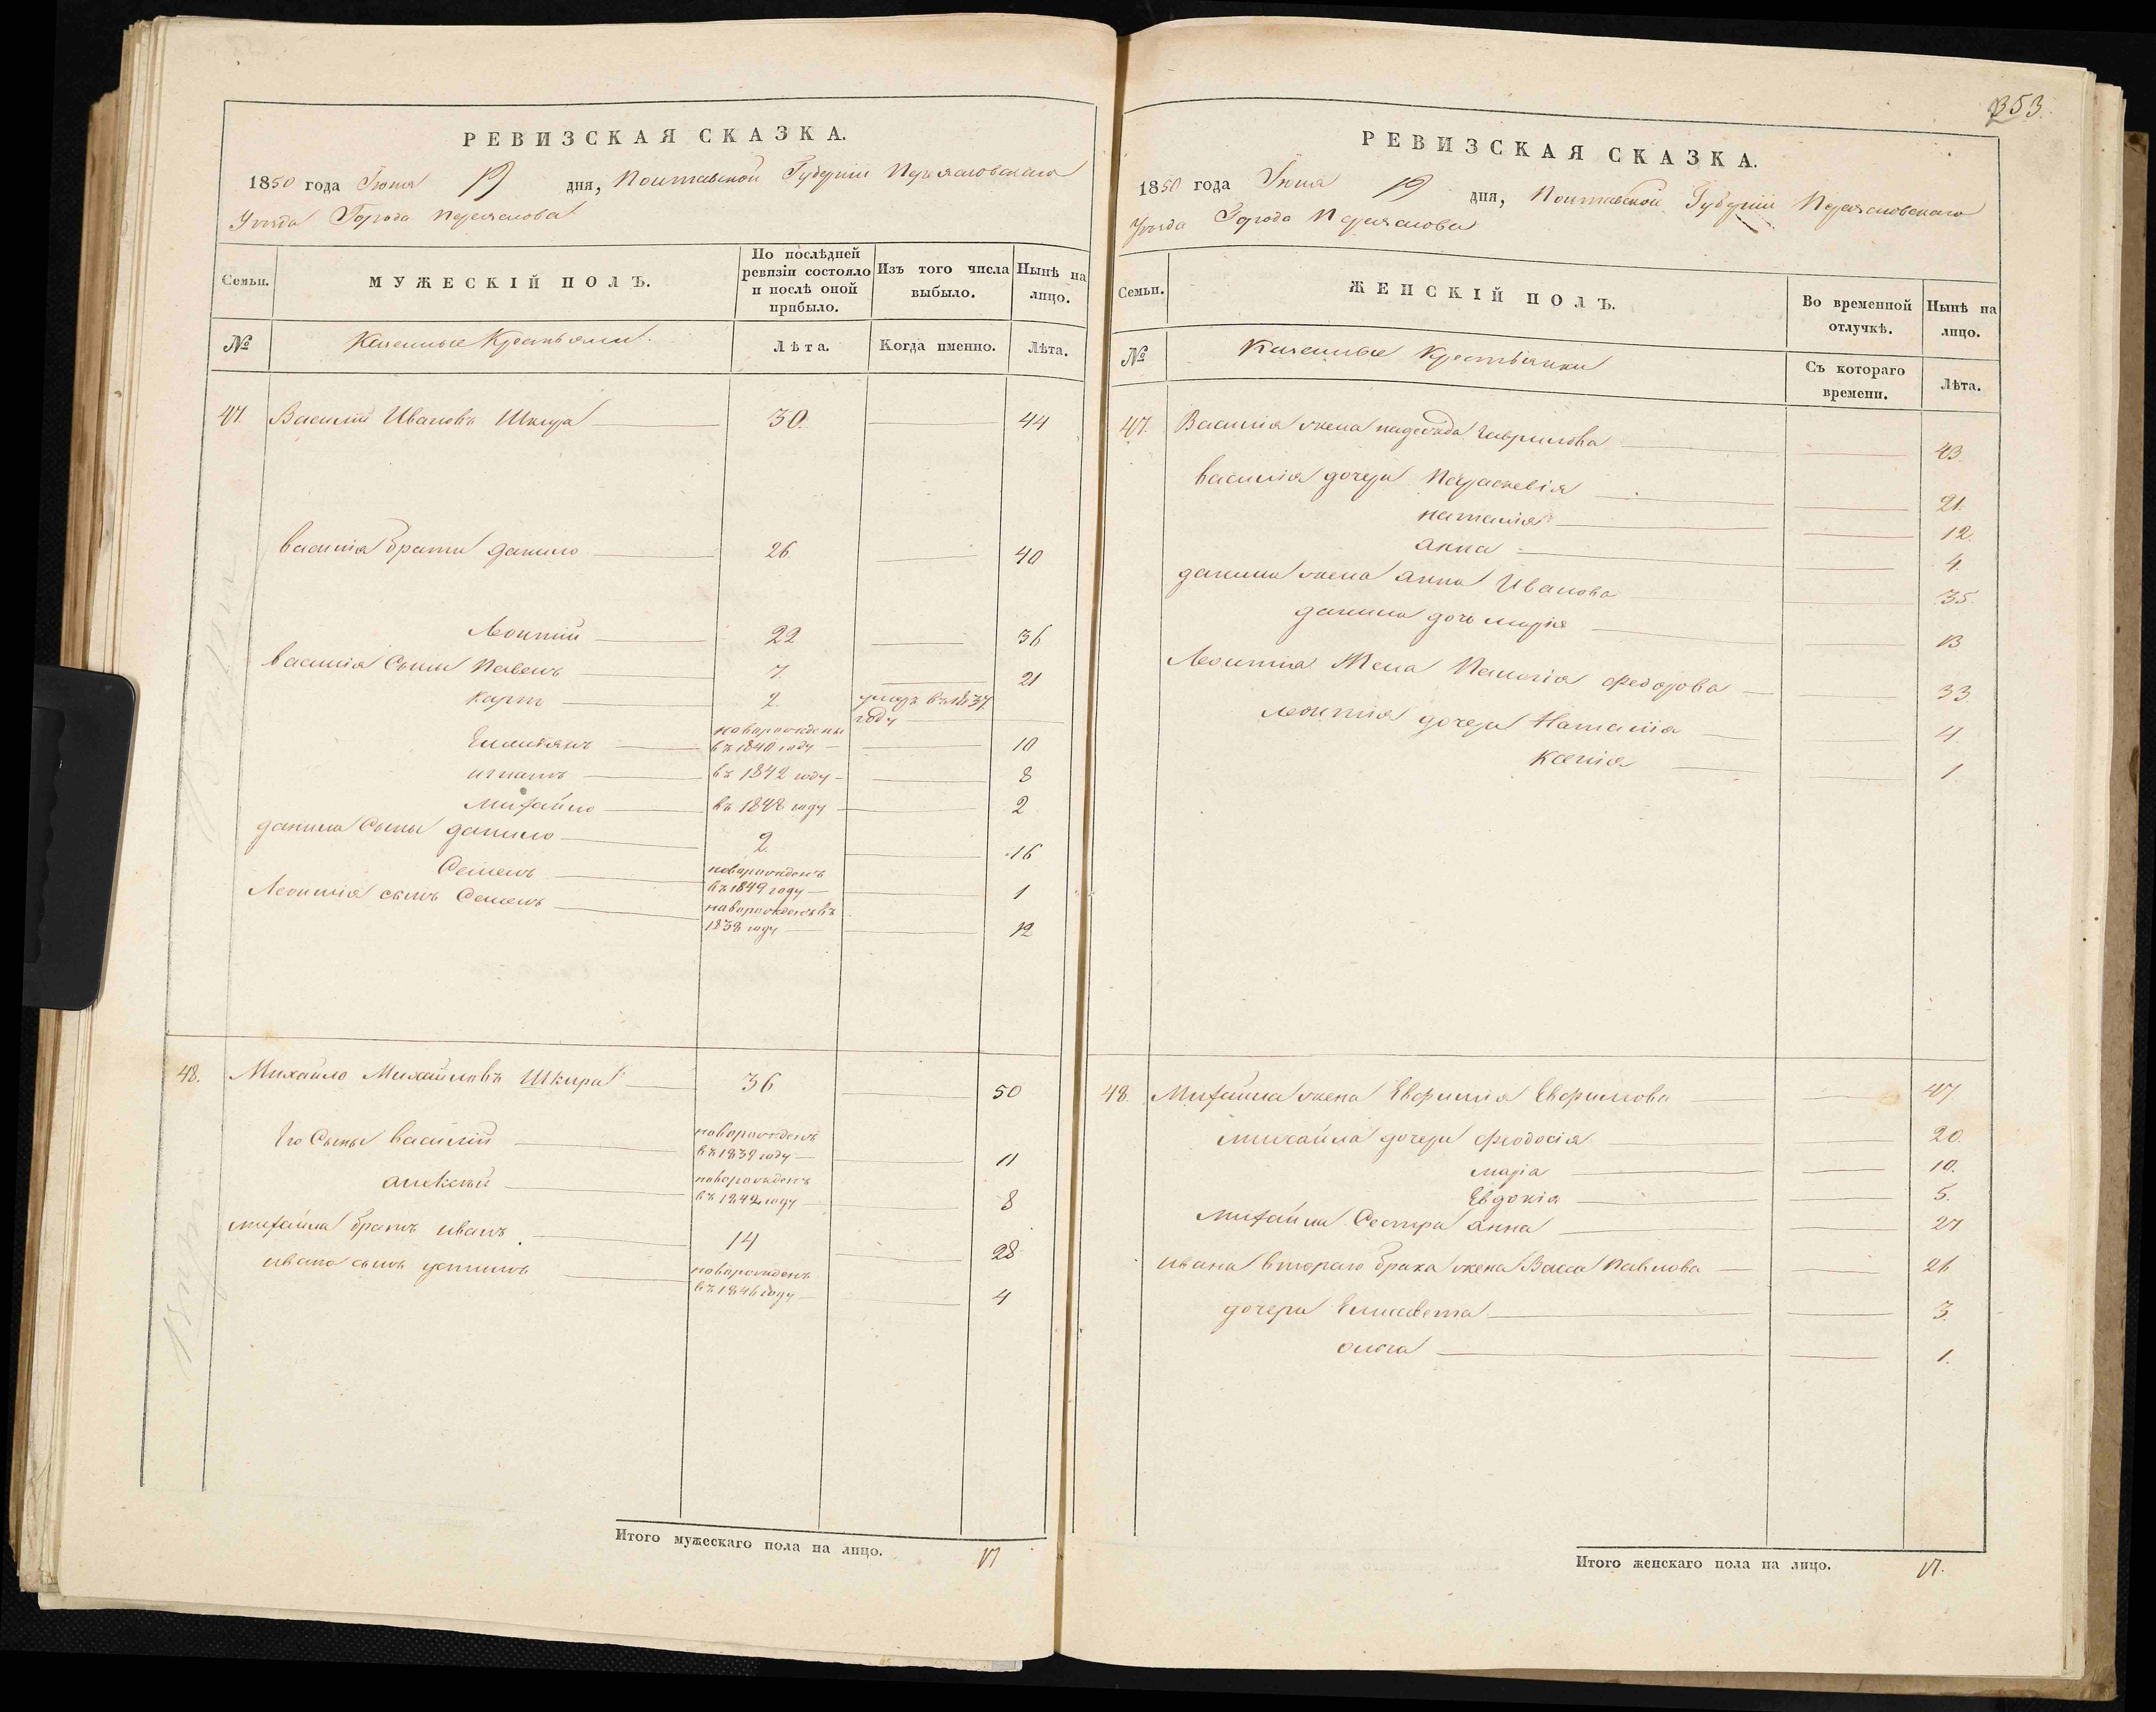 353.
РЕВИЗСКАЯ СКАЗКА.
1850 года Іюня 19 дня, Полтавской Губерніи Переяславскаго
Уѣзда Города Переяслова
Семьи. МУЖЕСКІЙ ПОЛЪ. По послѣдней ревизіи состояло и послѣ оной прибыло. Изъ того числа выбыло. Нынѣ на лицо.
№ Казенные Крестьяне. Лѣта. Когда именно. Лѣта.
47. Василій Ивановъ Шкура 30. 44
Василія братья Данило 26 40
Леонтій 22 36
Василія Сыны Павелъ 7. 21
Карпъ 2. умеръ въ 1837 году
Емельянъ новорожденъ въ 1840 году 10
Игнатъ въ 1842 году 8
Михайло въ 1848 году 2
Данила Сыны Данило 2. 16
Семенъ новорожденъ въ 1849 году 1
Леонтія сынъ Семенъ новорожденъ въ 1838 году 12
48. Михайло Михайловъ Шкура 36 50
Его Сыны Василій новорожденъ въ 1839 году 11
Алексей новорожденъ въ 1842 году 8
Михайла братъ Иванъ 14 28
Ивана сынъ Устимъ новорожденъ въ 1846 году 4
Итого мужескаго пола на лицо. 17
РЕВИЗСКАЯ СКАЗКА.
1850 года Іюня 19 дня, Полтавской Губерніи Переясловскаго
Уѣзда Города Переяслова
Семьи. ЖЕНСКІЙ ПОЛЪ. Во временной отлучкѣ. Нынѣ на лицо.
№ Казенные Крестьянки Съ котораго времени. Лѣта.
47. Василія жена Надежда Гаврилова 43.
Василія дочери Параскевія 21.
Наталія 12.
Анна 4.
Данила жена Анна Иванова 35.
Данила дочь Марія 13
Леонтія Жена Пелагія Федорова 33.
Леонтія дочери Наталія 4.
Ксенія 1
48. Михайла жена Евфимія Ефимова 47
Михайла дочери Феодосія 20.
Марія 10.
Евдокія 5.
Михайла Сестра Анна 27
Ивана втораго брака жена Васса Павлова 26
дочери Елисавета 3.
Ольга 1.
Итого женскаго пола на лицо. 17.